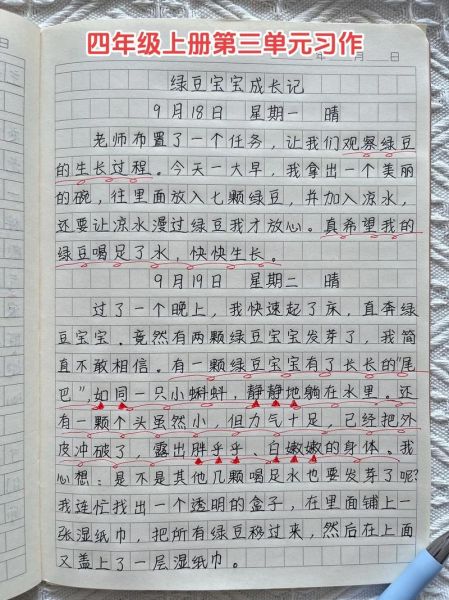 四年级上册第三单元习作
年 月 日
绿豆宝宝成长记
9月18日 星期一 晴
老师布置了一个任务，让我们观察绿豆
的生长过程。今天一大早，我拿出一个美丽
的碗，往里面放入七颗绿豆，并加入凉水，
还要让凉水漫过绿豆我才放心。真希望我的
绿豆喝足了水，快快生长。
9月19日 星期二 晴
过了一个晚上，我快速起了床，直奔绿
豆宝宝。竟然有两颗绿豆宝宝发芽了，我简
直不敢相信。有一颗绿豆宝宝有了长长的“尾
巴”，如同一只小蝌蚪，静静地躺在水里。还
有一颗个头虽然小，但力气十足，已经把外
皮冲破了，露出胖乎乎、白嫩嫩的身体。我
心想：是不是其他几颗喝足水也要发芽了呢？
我连忙找出一个透明的盒子，在里面铺上一
张湿纸巾，把所有绿豆移过来，然后在上面
又盖上了一层湿纸巾。